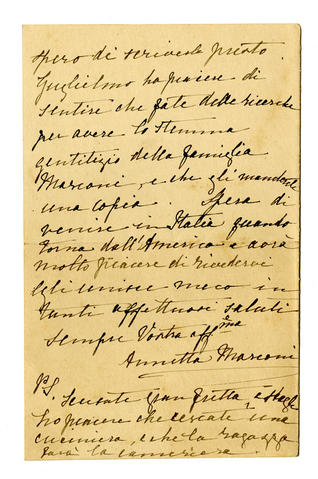 spero di scriverle presto.
Guglielmo ha piacere di
sentire che fate delle ricerche
per avere lo stemma
gentilizio della famiglia
Marconi, e che gli manderete
una copia. Spera di
venire in Italia quando
torna dall'America e avrà
molto piacere di rivedervi
Egli unisce meco in
tanti affettuosi saluti
sempre Vostra aff.ma
Annetta Marconi
P.S. Scusate gran fretta,
ho piacere che cercate una
cuciniera, e che la ragazza
farà la cameriera.